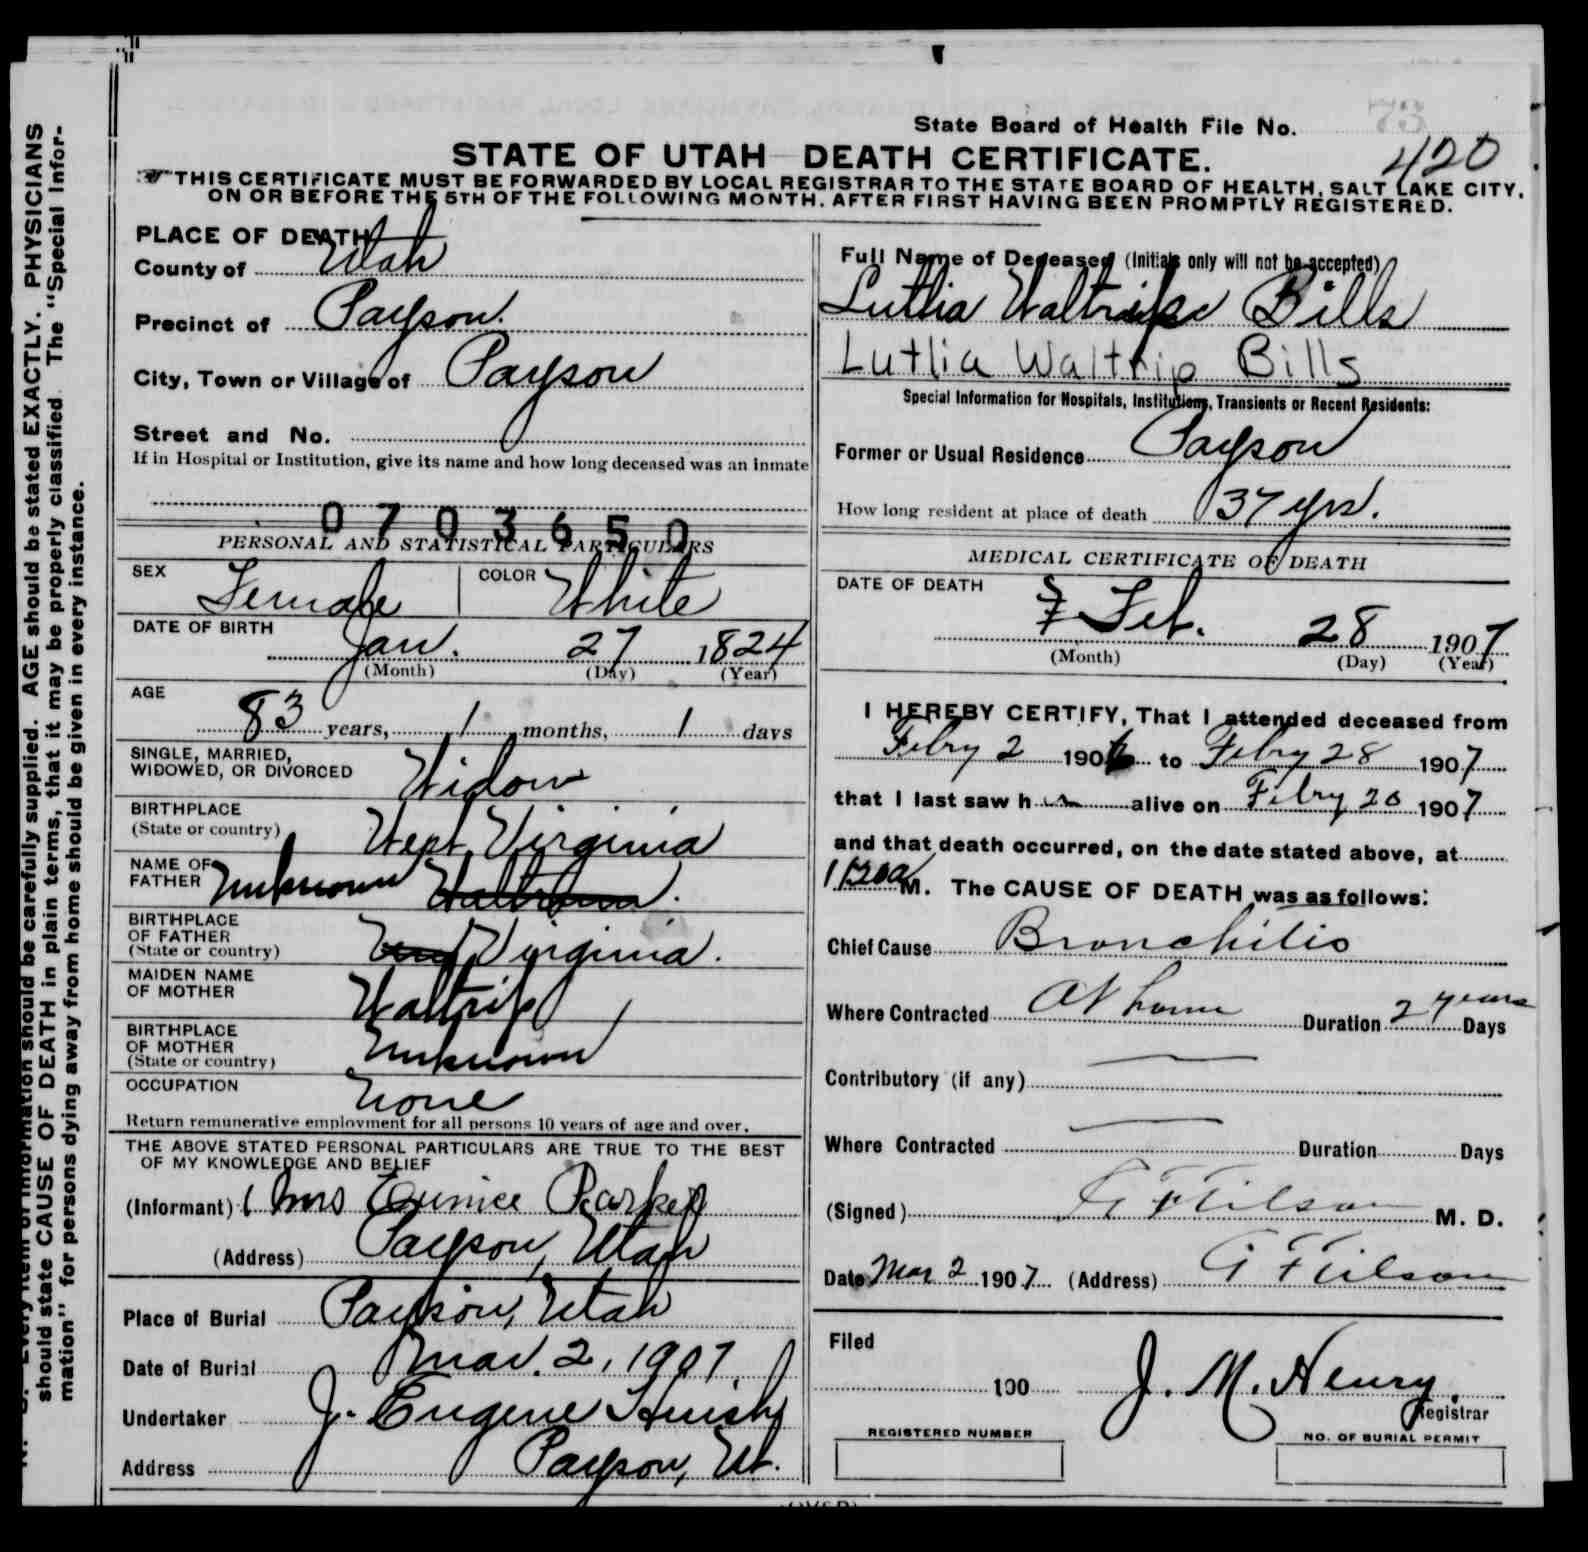 State Board of Health File No. 73
420
STATE OF UTAH DEATH CERTIFICATE.
THIS CERTIFICATE MUST BE FORWARDED BY LOCAL REGISTRAR TO THE STATE BOARD OF HEALTH, SALT LAKE CITY,
ON OR BEFORE THE 5TH OF THE FOLLOWING MONTH. AFTER FIRST HAVING BEEN PROMPTLY REGISTERED.
PLACE OF DEATH
County of Utah
Precinct of Payson
City, Town or Village of Payson
Street and No.
If in Hospital or Institution, give its name and how long deceased was an inmate
0703650
PERSONAL AND STATISTICAL PARTICULARS
SEX Female COLOR White
DATE OF BIRTH
Jan. 27 1824
(Month) (Day) (Year)
AGE
83 years, 1 months, 1 days
SINGLE, MARRIED,
WIDOWED, OR DIVORCED Widow
BIRTHPLACE
(State or country) West Virginia
NAME OF
FATHER Unknown
BIRTHPLACE
OF FATHER
(State or country) Virginia.
MAIDEN NAME
OF MOTHER Waltrip
BIRTHPLACE
OF MOTHER
(State or country) Unknown
OCCUPATION None
Return remunerative employment for all persons 10 years of age and over.
THE ABOVE STATED PERSONAL PARTICULARS ARE TRUE TO THE BEST
OF MY KNOWLEDGE AND BELIEF
(Informant) Mrs Eunice Parker
(Address) Payson, Utah
Place of Burial Payson, Utah
Date of Burial Mar. 2, 1907.
Undertaker J. Eugene Huish
Address Payson, Ut.
Full Name of Deceased (Initials only will not be accepted)
Lutlia Bills
Lutlia Waltrip Bills
Special Information for Hospitals, Institutions, Transients or Recent Residents:
Former or Usual Residence Payson
How long resident at place of death 37 yrs.
MEDICAL CERTIFICATE OF DEATH
DATE OF DEATH
Feb. 28 1907
(Month) (Day) (Year)
I HEREBY CERTIFY, That I attended deceased from
Febry 2 190 to Febry 28 1907
that I last saw h alive on Febry 20 1907
and that death occurred, on the date stated above, at
M. The CAUSE OF DEATH was as follows:
Chief Cause Bronchitis
Where Contracted At home Duration 2 years Days
Contributory (if any)
Where Contracted Duration Days
(Signed) M. D.
Date Mar 2 1907 (Address)
Filed
190 J. M. Henry.
Registrar
REGISTERED NUMBER
NO. OF BURIAL PERMIT
(OVER)
should be carefully supplied. AGE should be stated EXACTLY. PHYSICIANS
should state CAUSE OF DEATH in plain terms, that it may be properly classified. The "Special Infor-
mation" for persons dying away from home should be given in every instance.